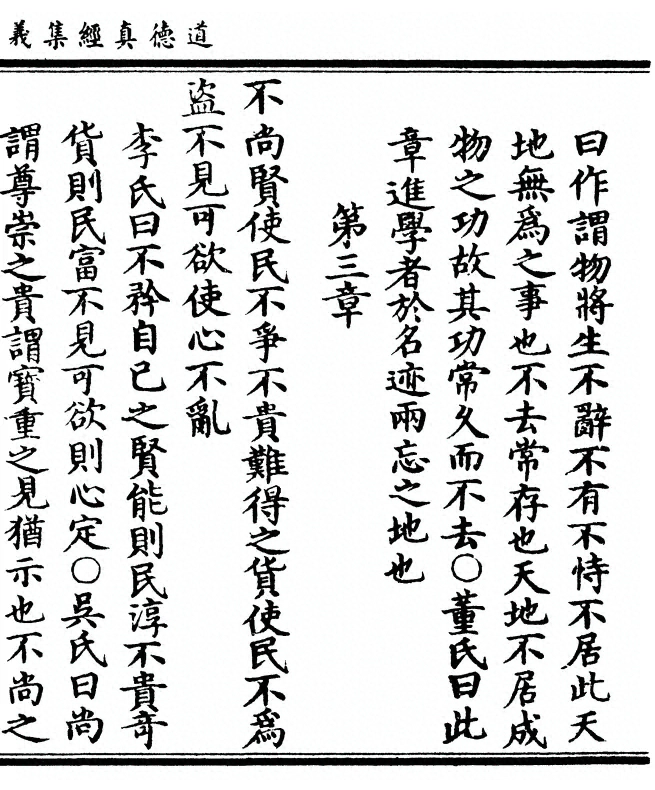 道德真經集義
曰作謂物將生不辭不有不恃不居此天
地無爲之事也不去常存也天地不居成
物之功故其功常久而不去○董氏曰此
章進學者於名迹兩忘之地也
第三章
不尚賢使民不爭不貴難得之貨使民不爲
盜不見可欲使心不亂
李氏曰不矜自己之賢能則民淳不貴奇
貨則民富不見可欲則心定○吳氏曰尚
謂尊崇之貴謂寶重之見猶示也不尚之